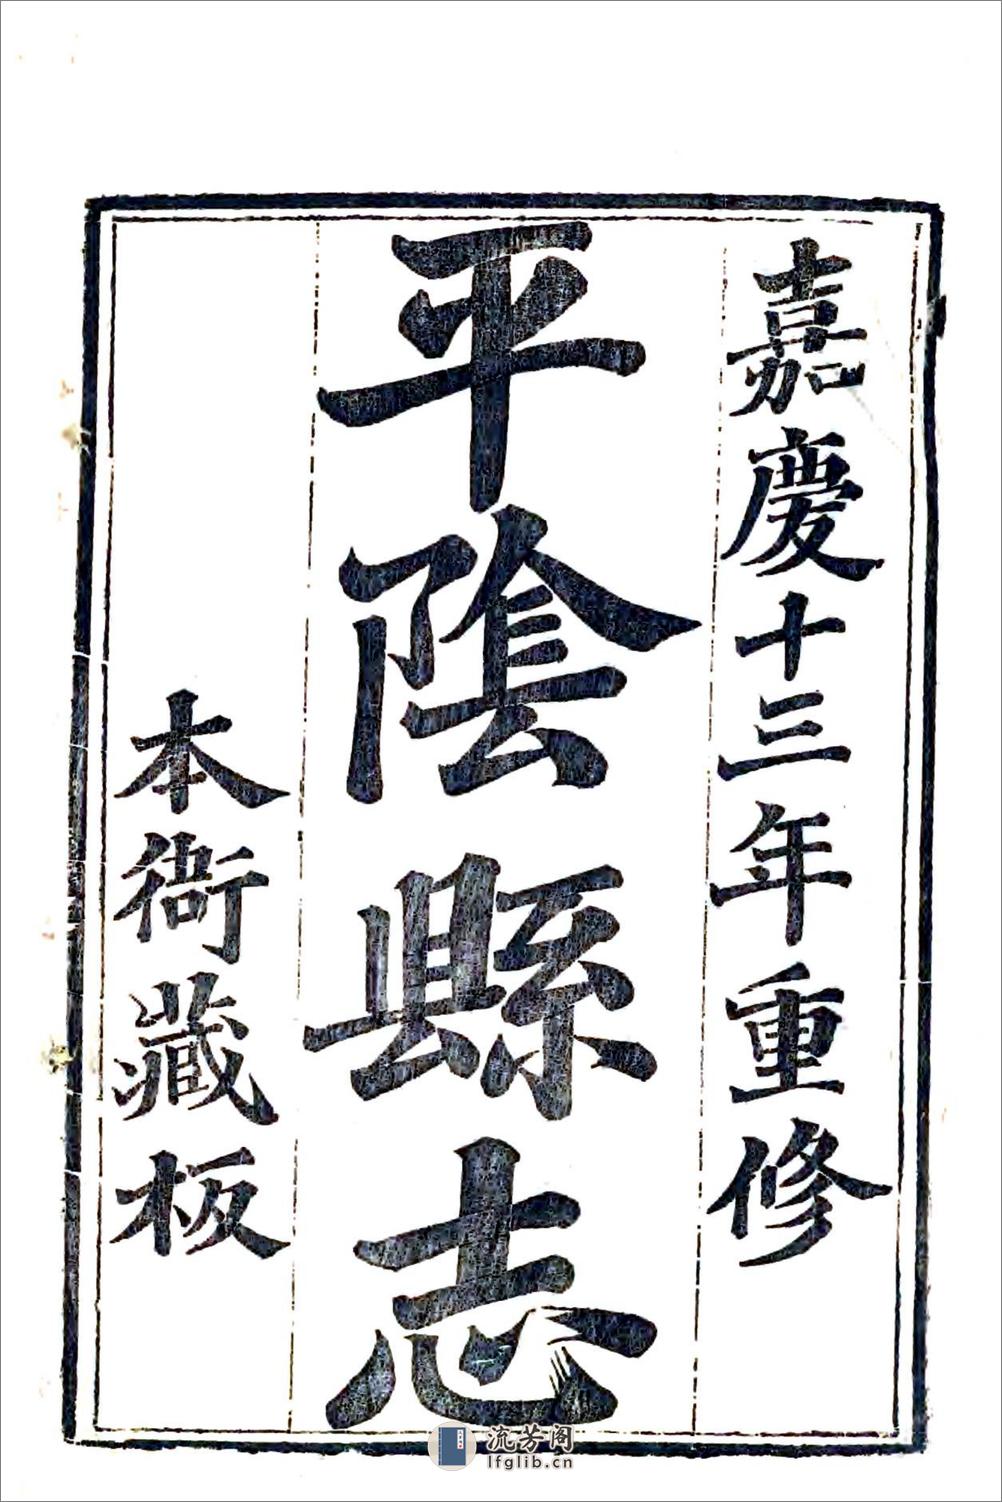 嘉慶十三年重修
平陰縣志
本衙藏板
流芳阁
lfglib.cn